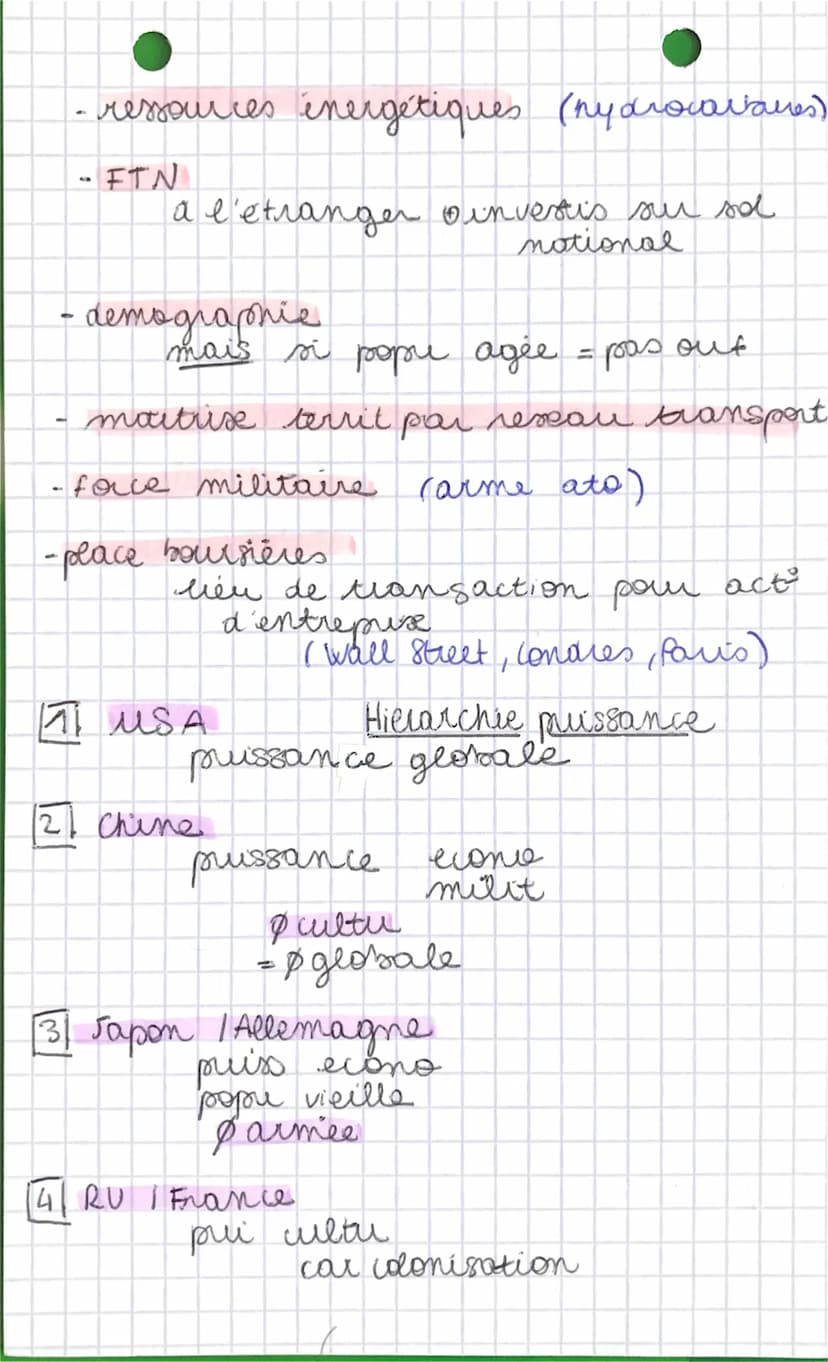 - ressources énergétiques (hydrocarbures)
- FTN
à l'etranger ⊕ investis sur sol
national
- demographie
mais si popu agée = pas ouf
- maitrise territ par reseau transport
- force militaire (arme ato)
- place boursières
lieu de transaction pour act°
d'entreprise
(Wall Street, Londres, Paris)
1 USA Hierarchie puissance
puissance globale
2 Chine
puissance econo
milit
∅ cultu
= ∅ globale
3 Japon / Allemagne
puiss econo
popu vieille
∅ armée
4 RU / France
pui cultu
car colonisation